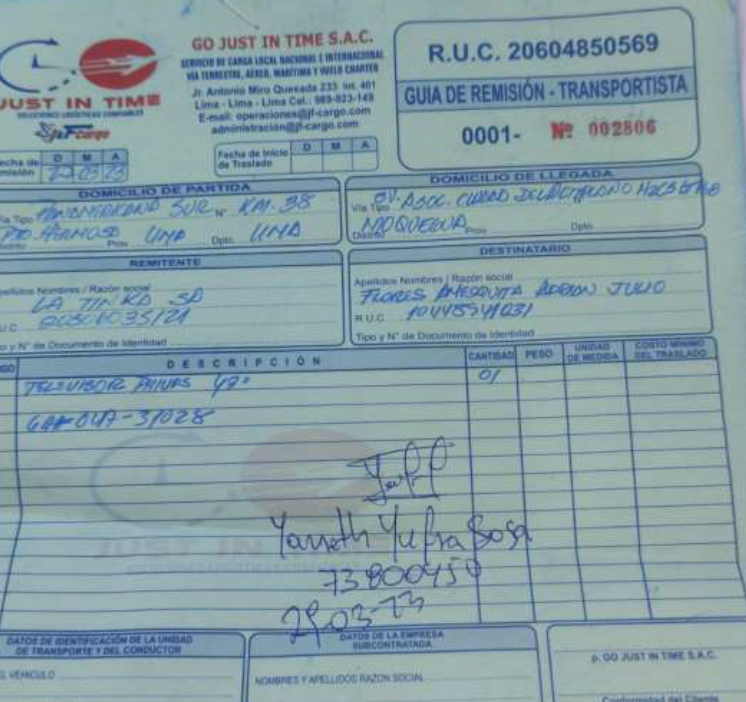 GO JUST IN TIME S.A.C.
SERVICIO DE CARGA LOCAL NACIONAL E INTERNACIONAL
VÍA TERRESTRE, AEREO, MARITIMA Y VUELO CHARTER
Jr. Antonio Miro Quesada 233 Int. 401
Lima - Lima - Lima Cel.: 989-823-148
E-mail: operaciones@jf-cargo.com
administración@jf-cargo.com
JUST IN TIME
SOLUCIONES LOGÍSTICAS CONFIABLES
cargo
R.U.C. 20604850569
GUIA DE REMISIÓN - TRANSPORTISTA
0001- Nº 002806
echa de misión
D M A
03 23
Fecha de Inicio de Traslado
D M A
DOMICILIO DE PARTIDA
Vía Tipo PANAMERICANA SUR Nº KM. 38
PTO. HERMOSO Prov. LIMA Dpto. LIMA
DOMICILIO DE LLEGADA
Vía Tipo
MOQUEGUA Prov. Dpto.
REMITENTE
Apellidos Nombres / Razón social
LA TINKA SA
R.U.C. 20506035121
Tipo y N° de Documento de Identidad
DESTINATARIO
Apellidos Nombres / Razón social
FLORES ADRIAN JULIO
R.U.C.
Tipo y N° de Documento de Identidad
DESCRIPCIÓN
CANTIDAD
PESO
UNIDAD DE MEDIDA
COSTO MÍNIMO DEL TRASLADO
TELEVISOR 01
Yanneth Yufra Sosa
73800450
DATOS DE IDENTIFICACIÓN DE LA UNIDAD
DE TRANSPORTE Y DEL CONDUCTOR
VEHICULO
DATOS DE LA EMPRESA
SUBCONTRATADA
NOMBRES Y APELLIDOS RAZON SOCIAL
p. GO JUST IN TIME S.A.C.
Conformidad del Cliente